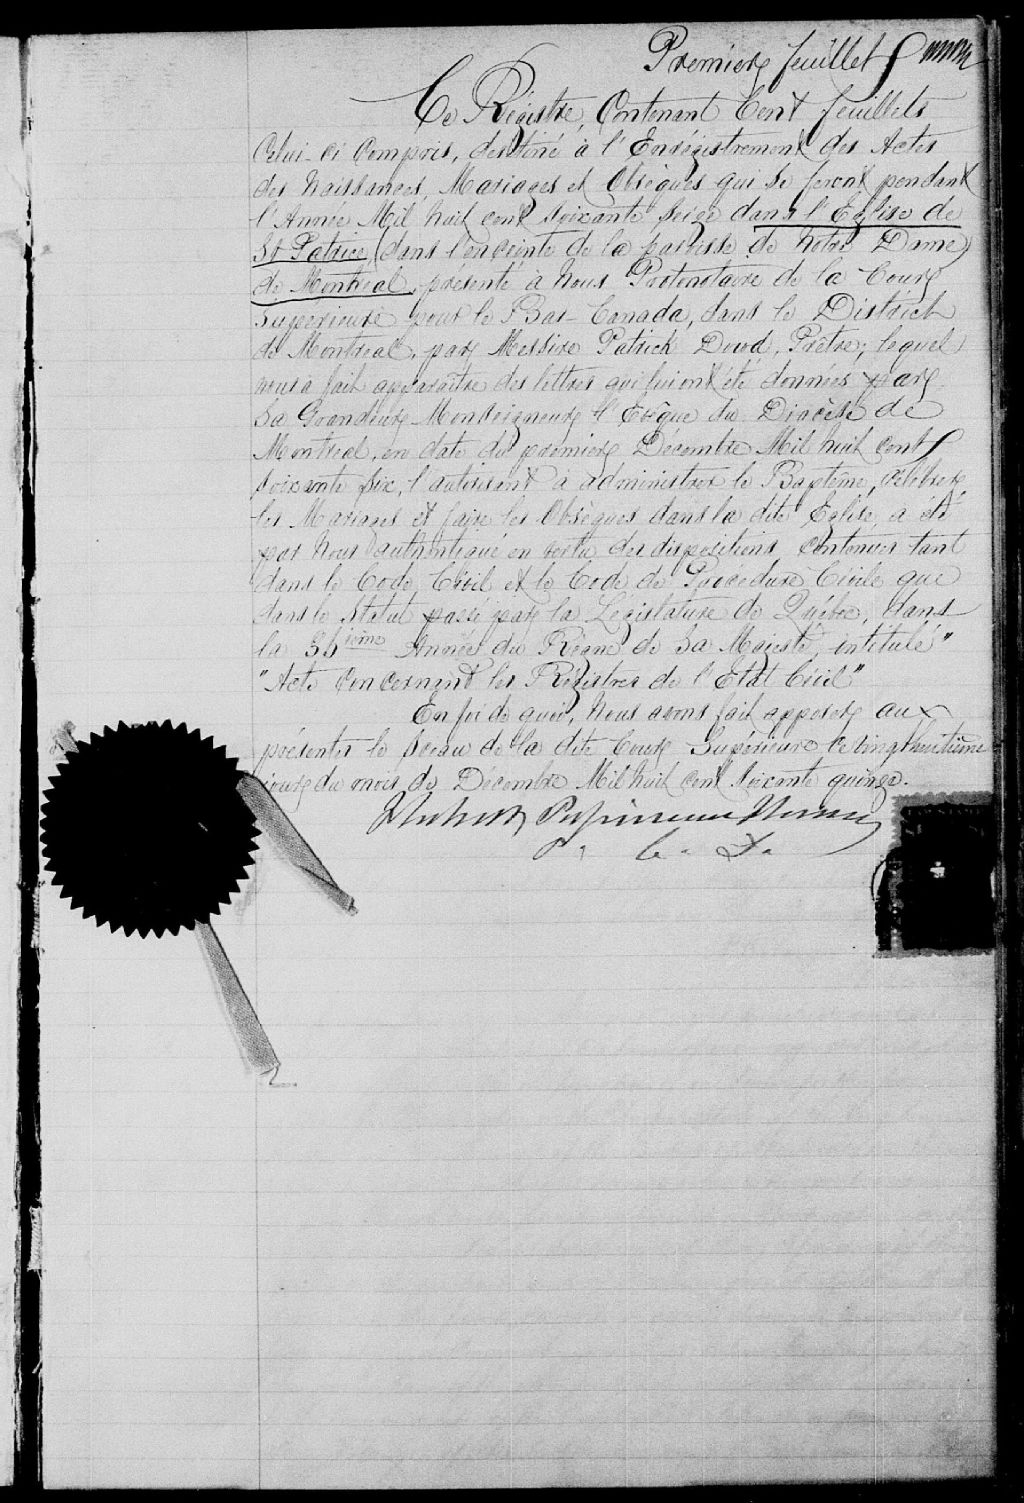 Premier feuillet
Ce Régistre, Contenant Cent feuillets
Celui-ci Compris, destiné à l'Enrégistrement des Actes
des Naissances, Mariages et Obsèques qui se feront pendant
l'Année Mil huit cent soixante seize dans l'Église de
St Patrice, (dans l'enceinte de la paroisse de Notre Dame)
de Montréal, présenté à Nous Protonotaire de la Cour
Supérieure pour le Bas-Canada, dans le District
de Montréal, par Messire Patrick Dowd, Prêtre, lequel
nous a fait apparaître des lettres qui lui ont été données par
Sa Grandeur Monseigneur l'Évêque du Diocèse de
Montréal, en date du premier Décembre Mil huit cent
soixante six, l'autorisant à administrer le Baptême, célébrer
les Mariages et faire les Obsèques dans la dite Église, a été
par Nous authentiqué en vertu des dispositions contenues tant
dans le Code Civil et le Code de Procédure Civile que
dans le Statut passé par la Législature de Québec, dans
la 36ième Année du Règne de Sa Majesté, intitulé "
"Acte Concernant les Régistres de l'Etat Civil"
En foi de quoi, Nous avons fait apposer aux
présentes le Sceau de la dite Cour Supérieure ce vingt huitième
jour du mois de Décembre Mil huit cent soixante quinze.
Hubert Papineau Honey
P. C. S.